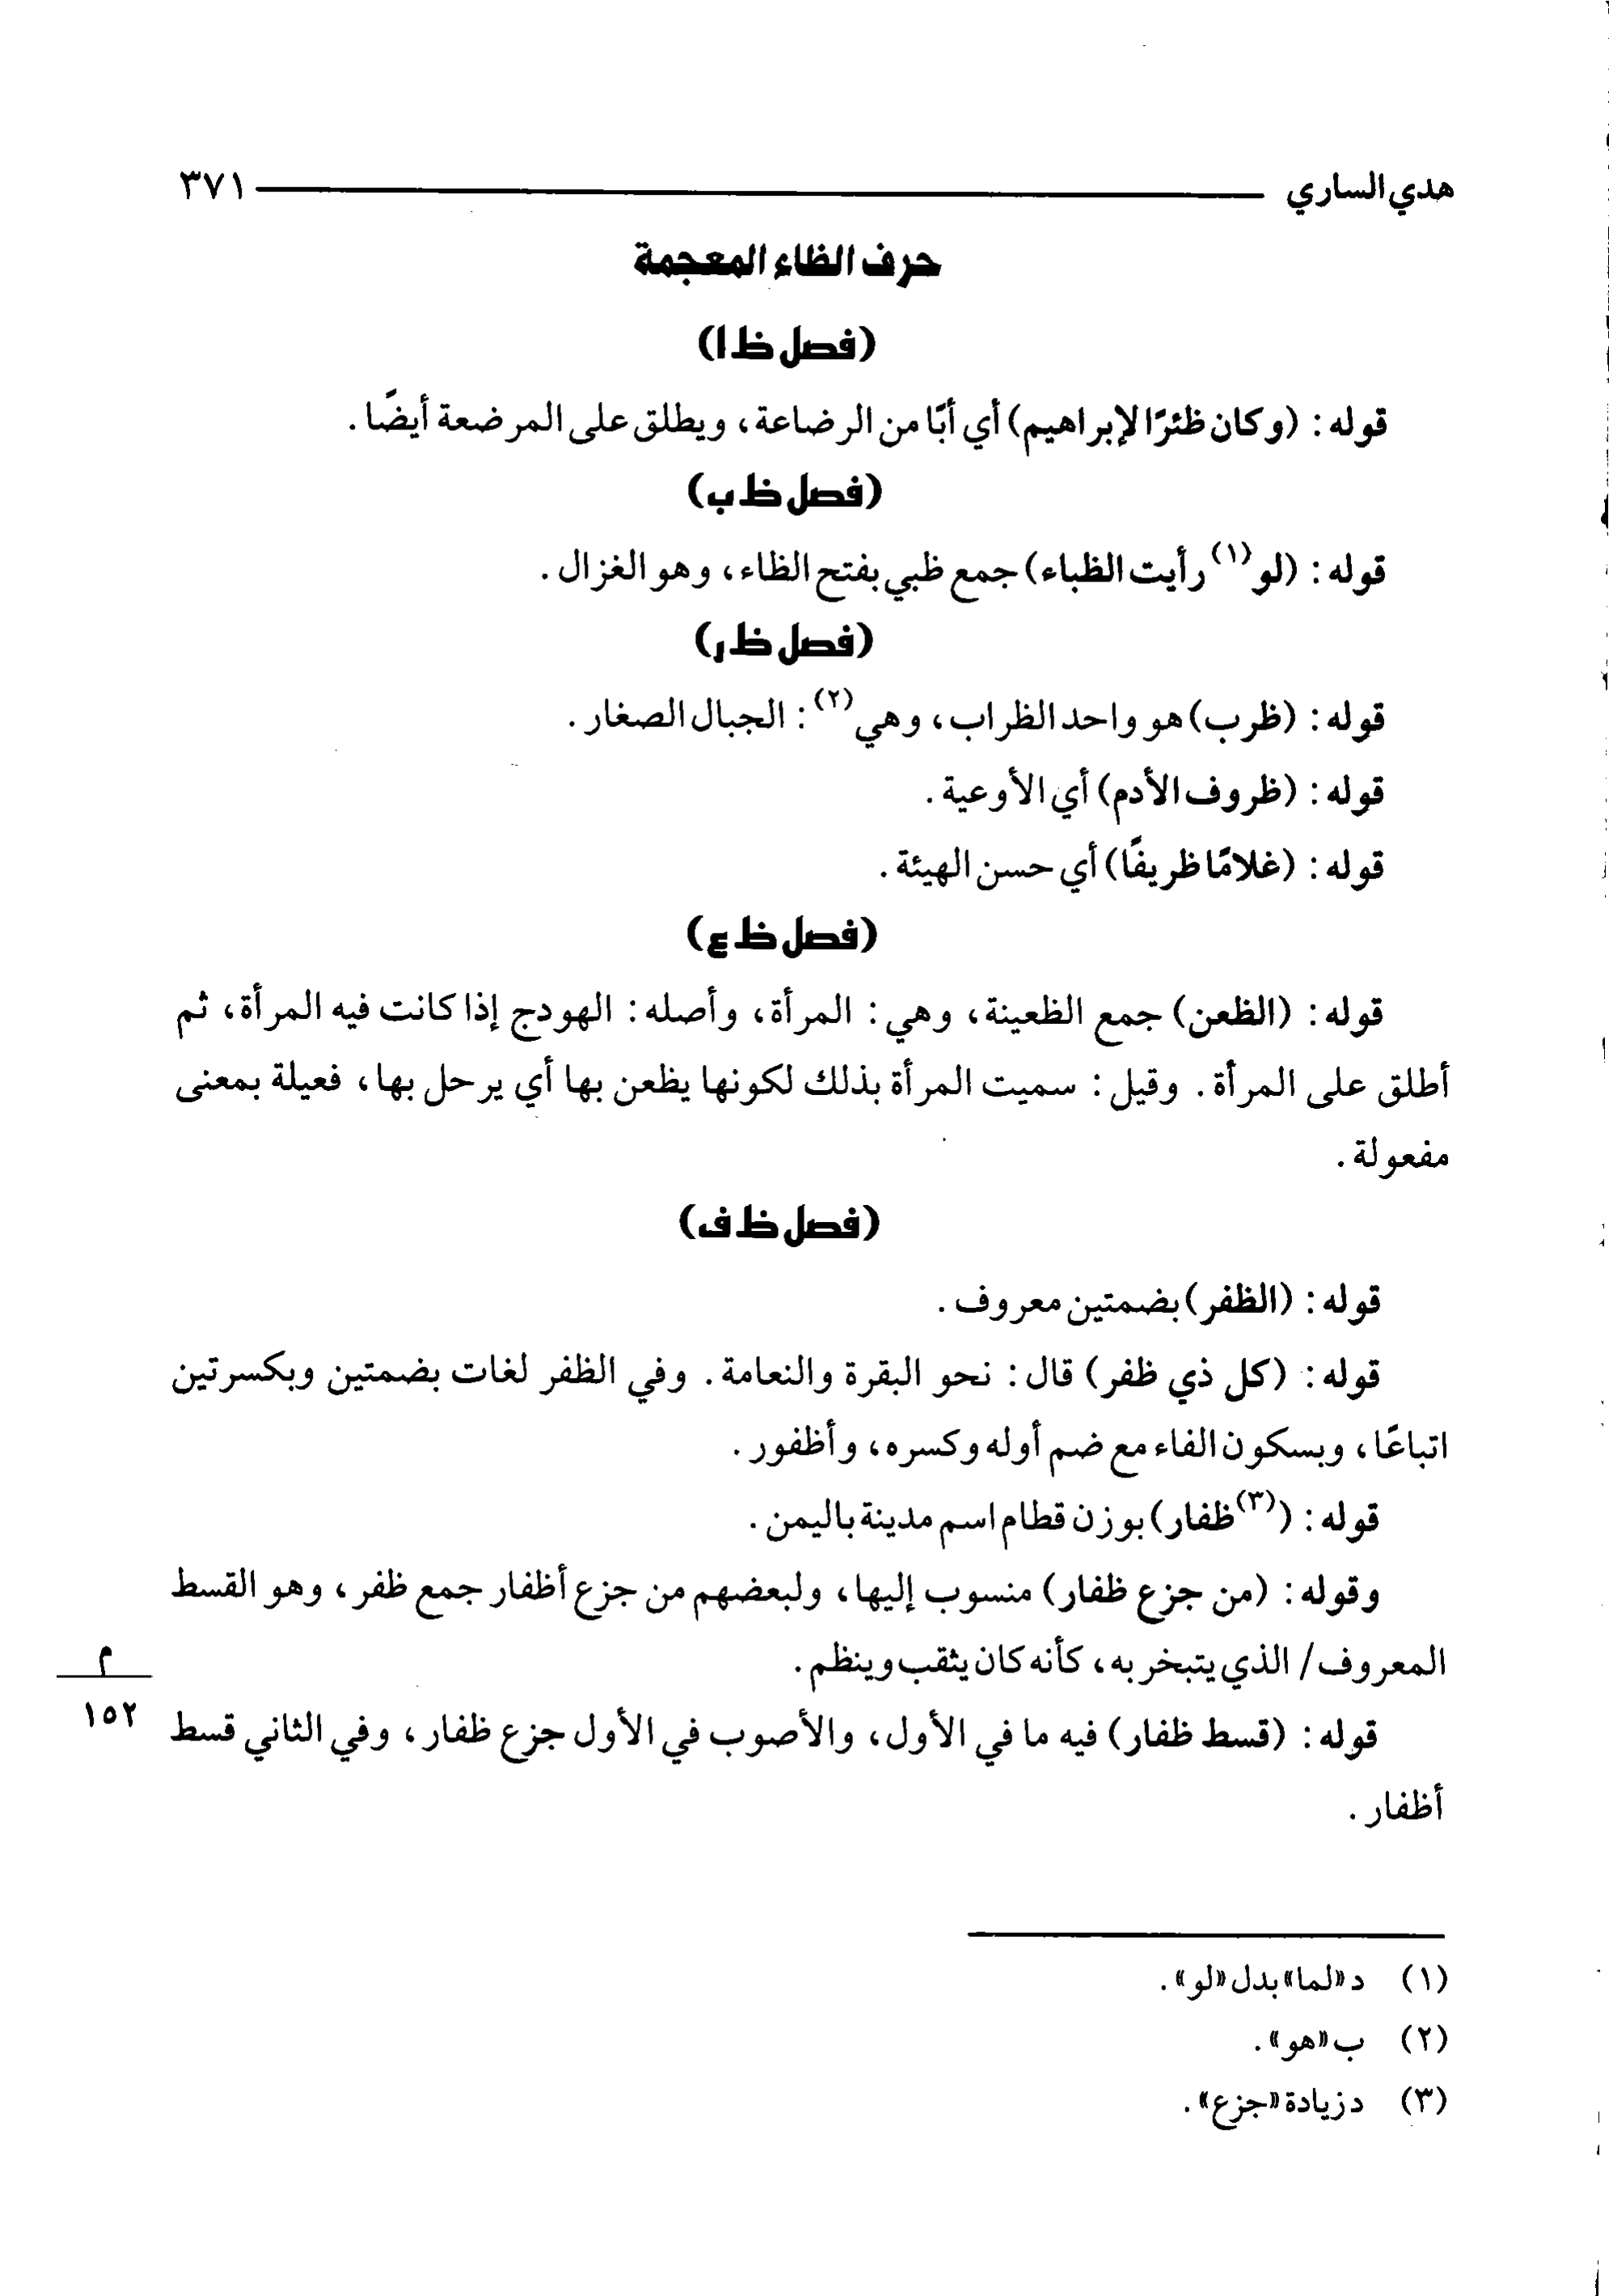 هدي الساري ٣٧١
حرف الظاء المعجمة
(فصل ظ ا)
قوله : (وكان ظئرًا لإبراهيم) أي أبًا من الرضاعة، ويطلق على المرضعة أيضًا.
(فصل ظ ب)
قوله : (لو(١) رأيت الظباء) جمع ظبي بفتح الظاء، وهو الغزال.
(فصل ظ ر)
قوله : (ظرب) هو واحد الظراب، وهي(٢) : الجبال الصغار.
قوله : (ظروف الأدم) أي الأوعية.
قوله : (غلامًا ظريفًا) أي حسن الهيئة.
(فصل ظ ع)
قوله : (الظعن) جمع الظعينة، وهي : المرأة، وأصله : الهودج إذا كانت فيه المرأة، ثم
أطلق على المرأة. وقيل : سميت المرأة بذلك لكونها يظعن بها أي يرحل بها، فعيلة بمعنى
مفعولة.
(فصل ظ ف)
قوله : (الظفر) بضمتين معروف.
قوله : (كل ذي ظفر) قال : نحو البقرة والنعامة. وفي الظفر لغات بضمتين وبكسرتين
اتباعًا، وبسكون الفاء مع ضم أوله وكسره، وأظفور.
قوله : ((٣)ظفار) بوزن قطام اسم مدينة باليمن.
وقوله : (من جزع ظفار) منسوب إليها، ولبعضهم من جزع أظفار جمع ظفر، وهو القسط
المعروف/ الذي يتبخر به، كأنه كان يثقب وينظم.
م
١٥٢
قوله : (قسط ظفار) فيه ما في الأول، والأصوب في الأول جزع ظفار، وفي الثاني قسط
أظفار.
(١) د «لما» بدل «لو».
(٢) ب «هو».
(٣) د زيادة «جزع».